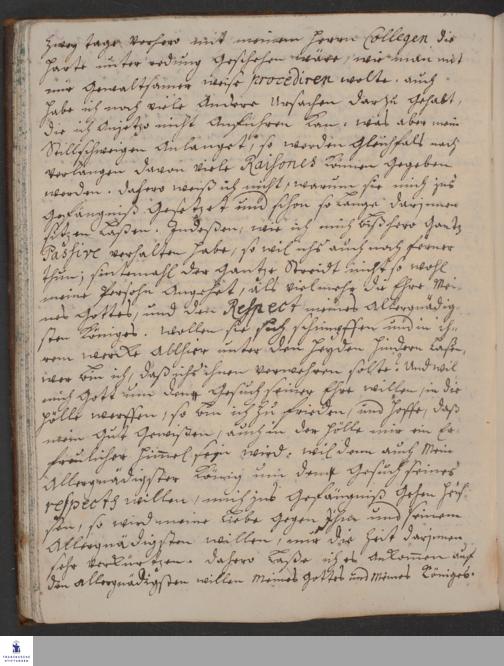 Zwey tage vorhero mit meinem Herrn Collegen die
harte unterredung geschehen wäre, wie man mit
mir gewaltsamer weise procediren wolte. auch
habe ich noch viele andere Ursachen darzu gehabt,
die ich anjetzo nicht anführen kan. was aber mein
Stillschweigen anlanget, so werden gleichfals nach
verlangen davon viele Raisones können gegeben
werden. dahero weiß ich nicht, warum sie mich ins
gefängniß gesetzet und schon so lange darinnen
sitzen laßen. Indeßen, wie ich mich bißhero gantz
Passive verhalten habe, so wil ichs auch noch ferner
thun; sintemahl der gantze Streidt nicht so wohl
meine Persohn angehet, als vielmehr die Ehre Mei-
nes Gottes, und den Respect meines Allergnädig-
sten Königes. wollen sie sich schimpffen und in ih-
rem wercke allhier unter den Heyden hindern laßen,
wer bin ich, daß ichs ihnen verwehren solte? Und wil
mich Gott um Gesuch seiner Ehre willen, in die
Hölle werffen, so bin ich zu frieden, und hoffe, daß
mein gut gewißen, auch in der Hölle mir ein Er-
freulicher Himmel seyn wird. wil dem auch Mein
Allergnädigster König um Gesuch seines
respects willen, mich ins gefängniß gehen heis-
sen, so wird meine Liebe gegen Ihn und seinem
Allergnädigsten willen, mir die Zeit darinnen
sehr verkürtzen. dahero laße ich es ankommen auf
den allergnädigsten willen Meines Gottes und Meines Königes.
FRANCKESCHE
STIFTUNGEN